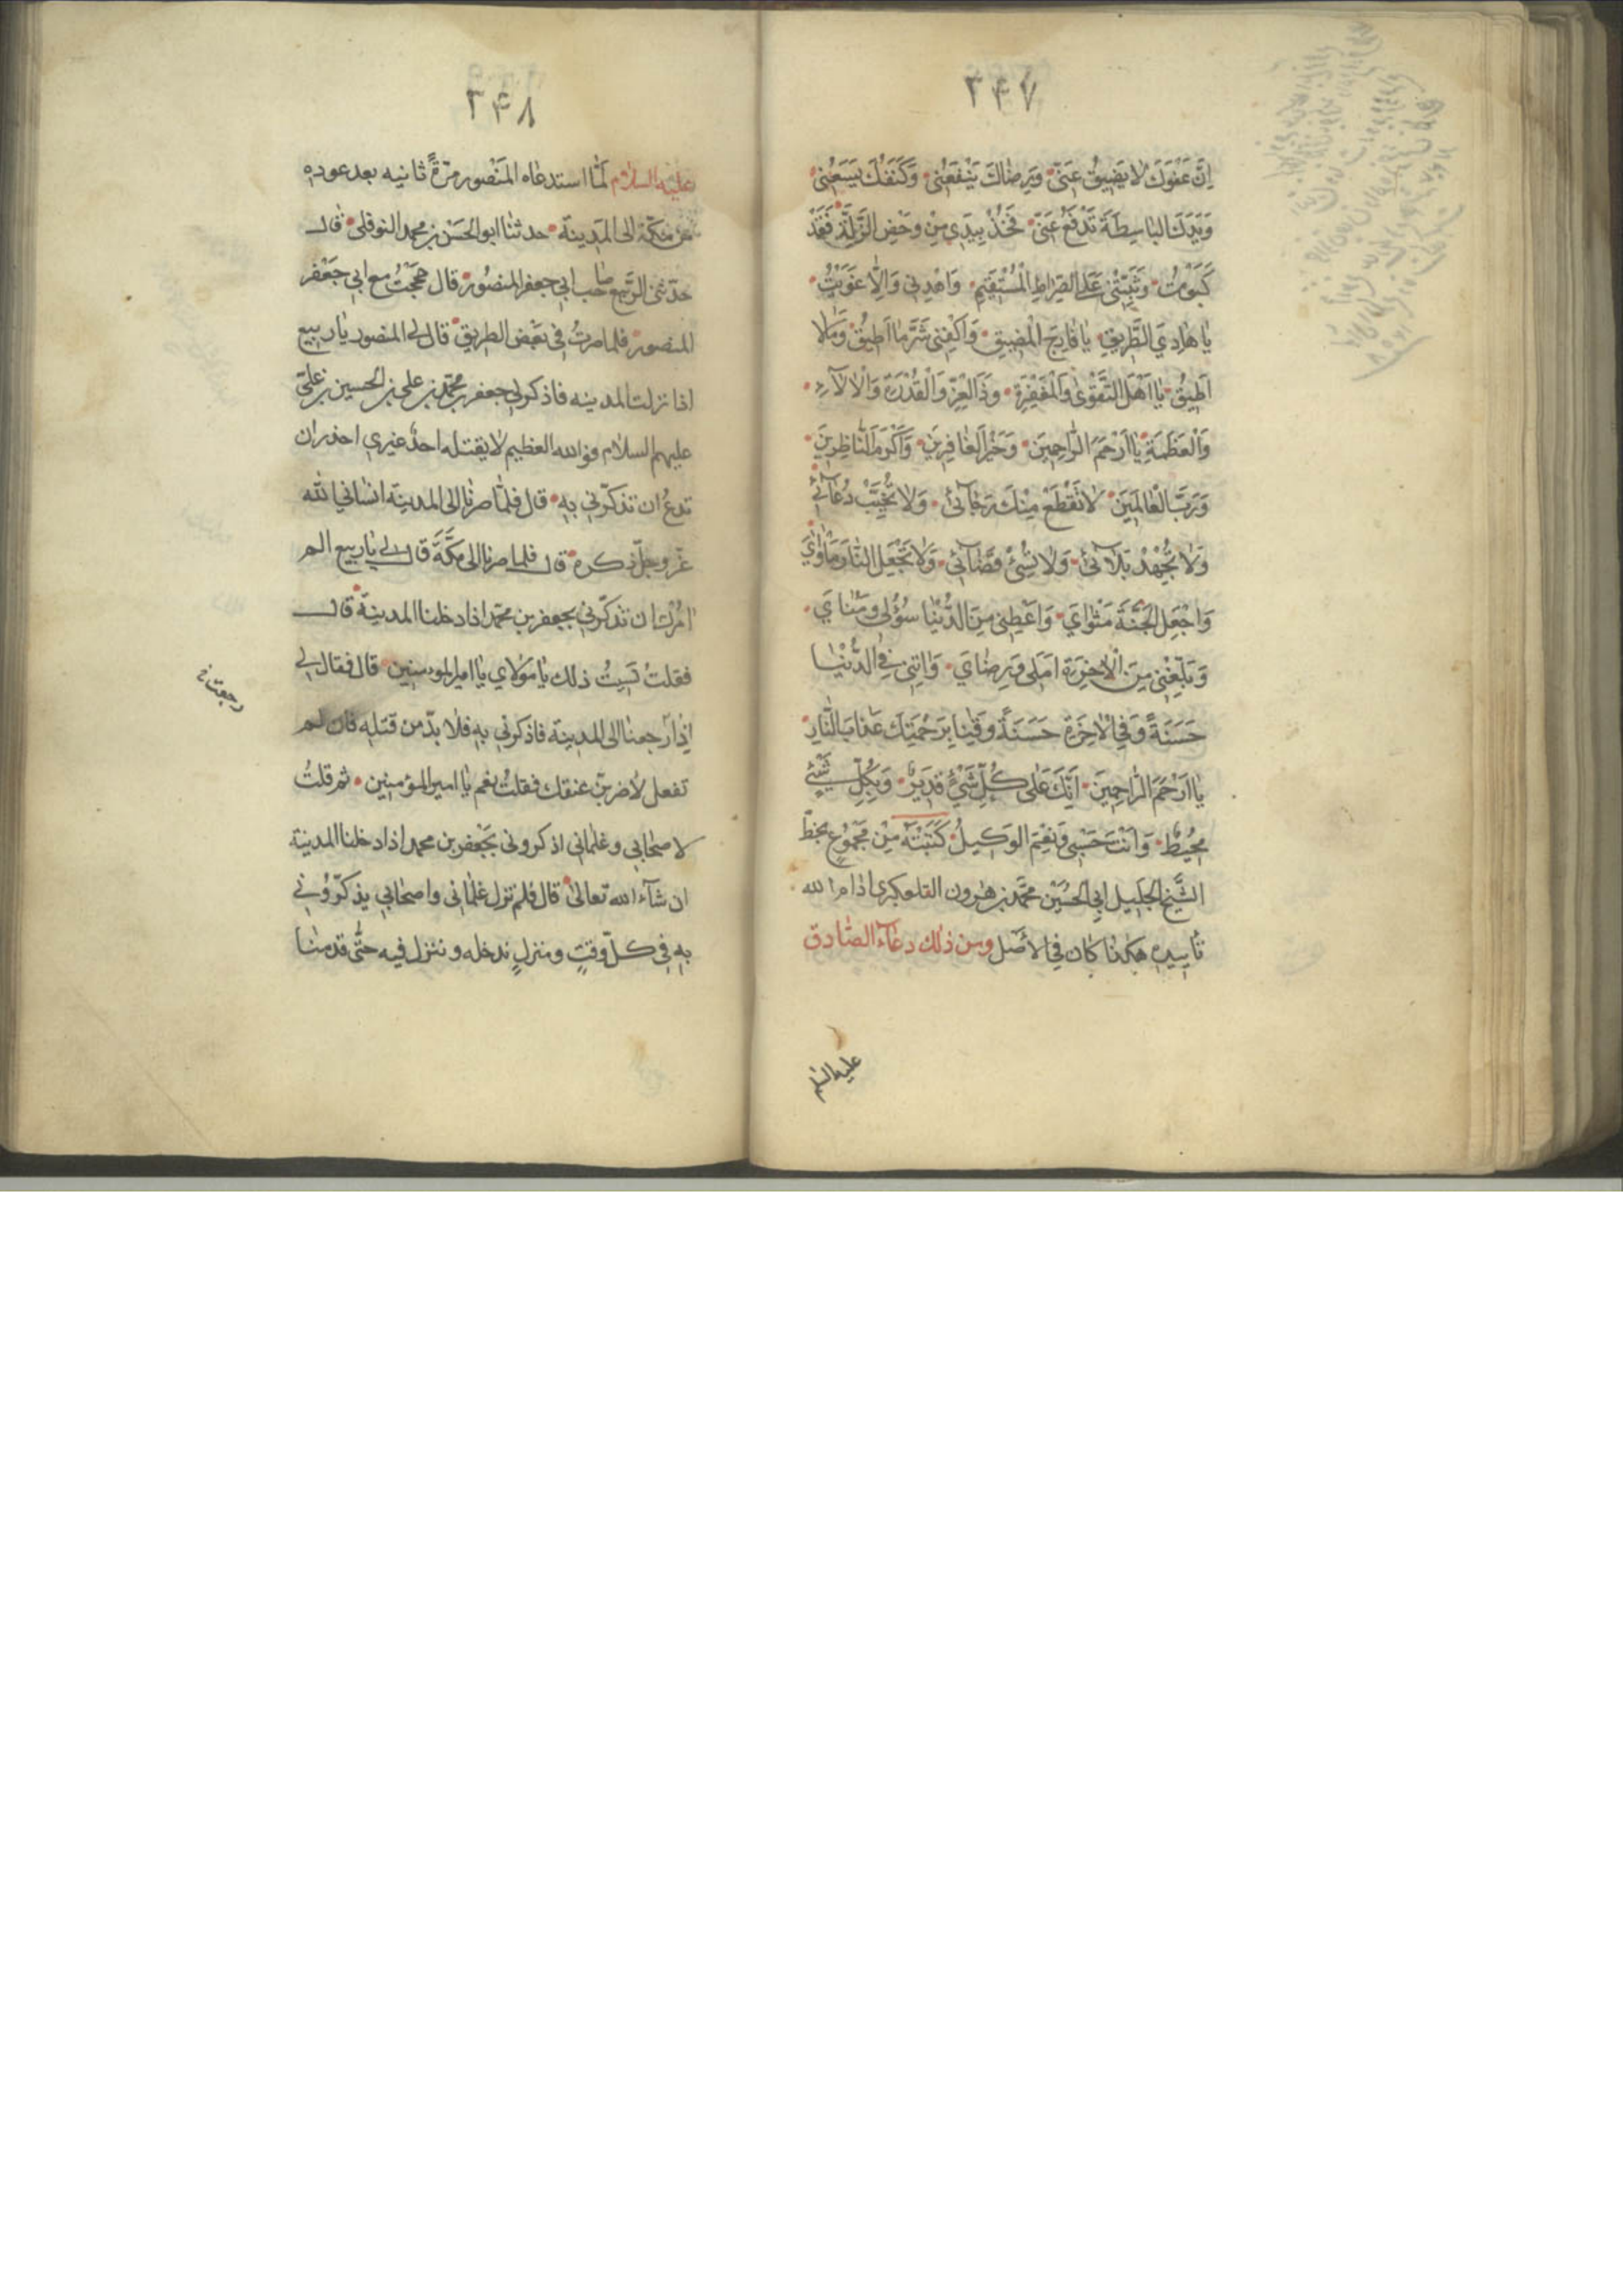 ٣۴٧
اِنَّ عَفْوَكَ لٰا يَضيقُ عَنّى وَرِضٰاكَ يَنْفَعُنى وَكَنَفَكَ يَسَعُنى
وَيَدَكَ البٰاسِطَةَ تَدْفَعُ عَنّى فَخُذْ بِيَدي مِنْ وَحْضِ الزَّلَّةِ فَقَدْ
كَبَوْتُ وَثَبِّتْنى عَلَى الصِّرٰاطِ الْمُسْتَقيمِ وَاهْدِنى وَاِلّٰا غَوَيْتُ
يٰا هٰادِيَ الطَّريقِ يٰا فٰارِجَ الْمَضيقِ وَاكْفِنى شَرَّ مٰا اُطيقُ وَمٰالا
اُطيقُ يٰا اَهْلَ التَّقْوىٰ وَالْمَغْفِرَةِ وَذَا الْعِزِّ وَالْقُدْرَةِ وَالْاٰلآءِ
وَالْعَظَمَةِ يٰا اَرْحَمَ الرّٰاحِمينَ وَخَيْرَ الغٰافِرينَ وَاَكْرَمَ النّٰاظِرينَ
وَرَبَّ الْعٰالَمينَ لٰا تَقْطَعْ مِنْكَ رَجٰآئى وَلا تُخَيِّبْ دُعٰآئى
وَلٰا تُجْهِدْ بَلٰآئى وَلٰا تُسِئْ قَضٰآئى وَلٰا تَجْعَلِ النّٰارَ مَأْوٰايَ
وَاجْعَلِ الْجَنَّةَ مَثْوٰايَ وَاَعْطِنى مِنَ الدُّنْيٰا سُؤْلى وَمُنٰايَ
وَبَلِّغْنى مِنَ الْاٰخِرَةِ اَمَلى وَرِضٰايَ وَاٰتِنى فِى الدُّنْيٰا
حَسَنَةً وَفِي الْاٰخِرَةِ حَسَنَةً وَقِنٰا بِرَحْمَتِكَ عَذٰابَ النّٰارِ
يٰا اَرْحَمَ الرّٰاحِمينَ اِنَّكَ عَلٰى كُلِّ شَيْءٍ قَديرٌ وَبِكُلِّ شَيْءٍ
مُحيطٌ وَاَنْتَ حَسْبى وَنِعْمَ الوَكيلُ كَتَبْتُهُ مِنْ مَجْمُوعٍ بخطّ
الشَّيْخِ الجَليلِ ابي الحُسَيْن محمَّد بن هٰرون التلعكبرى ادٰام الله
تأييده هكذا كان في الاَصْل ومن ذلك دعآء الصّٰادق
عليه السلم
٣۴٨
عليه السلام لمّٰا استدعٰاه المَنْصُور مرّةً ثانيه بعد عوده
من مكّة الى المدينة حدثنٰا ابو الحَسَن بن محمد النوفلى قال
حدّثنى الرَّبيع صٰاحب ابي جعفر المنصُور قال حججتُ مع ابي جَعْفر
المنصور فلما صرتُ في بَعْض الطريق قال لى المنصور يٰا ربيع
اذا نزلت المدينه فاذكر لي جعفر بن محمّد بن على بن الحسين بن علىّ
عليهم السلام فو الله العظيم لا يقتله احدٌ غيري احذر ان
تدعُ ان تذكّرني به قال فلمّٰا صرنٰا الى المدينة انسٰاني الله
عزّ وجلّ ذكره قال فلما صرنا الى مكَّةَ قال لى يٰا ربيع الم
امُرك ان تذكّرني بجعفر بن محمّد اذا دخلنا المدينة قال
فقلتُ نَسِيتُ ذلك يٰا مَوْلاي يٰا امير المؤمنين قال فقال لى
اذا رجعنٰا الى المدينة فاذكرني به فلٰا بدّ من قتله فان لم
تفعل لأضربنّ عنقك فقلتُ نعم يٰا امير المؤمنين ثم قلتُ
لاصحٰابي وغلمٰاني اذكروني بجَعْفر بن محمد اذا دخلنا المدينة
ان شآء الله تعالىٰ قال فلم تزل غلمٰاني واصحٰابي يذكّرُوني
به في كلّ وقتٍ ومنزلٍ ندخله وننزل فيه حتّى قدمنٰا
رجعت خ